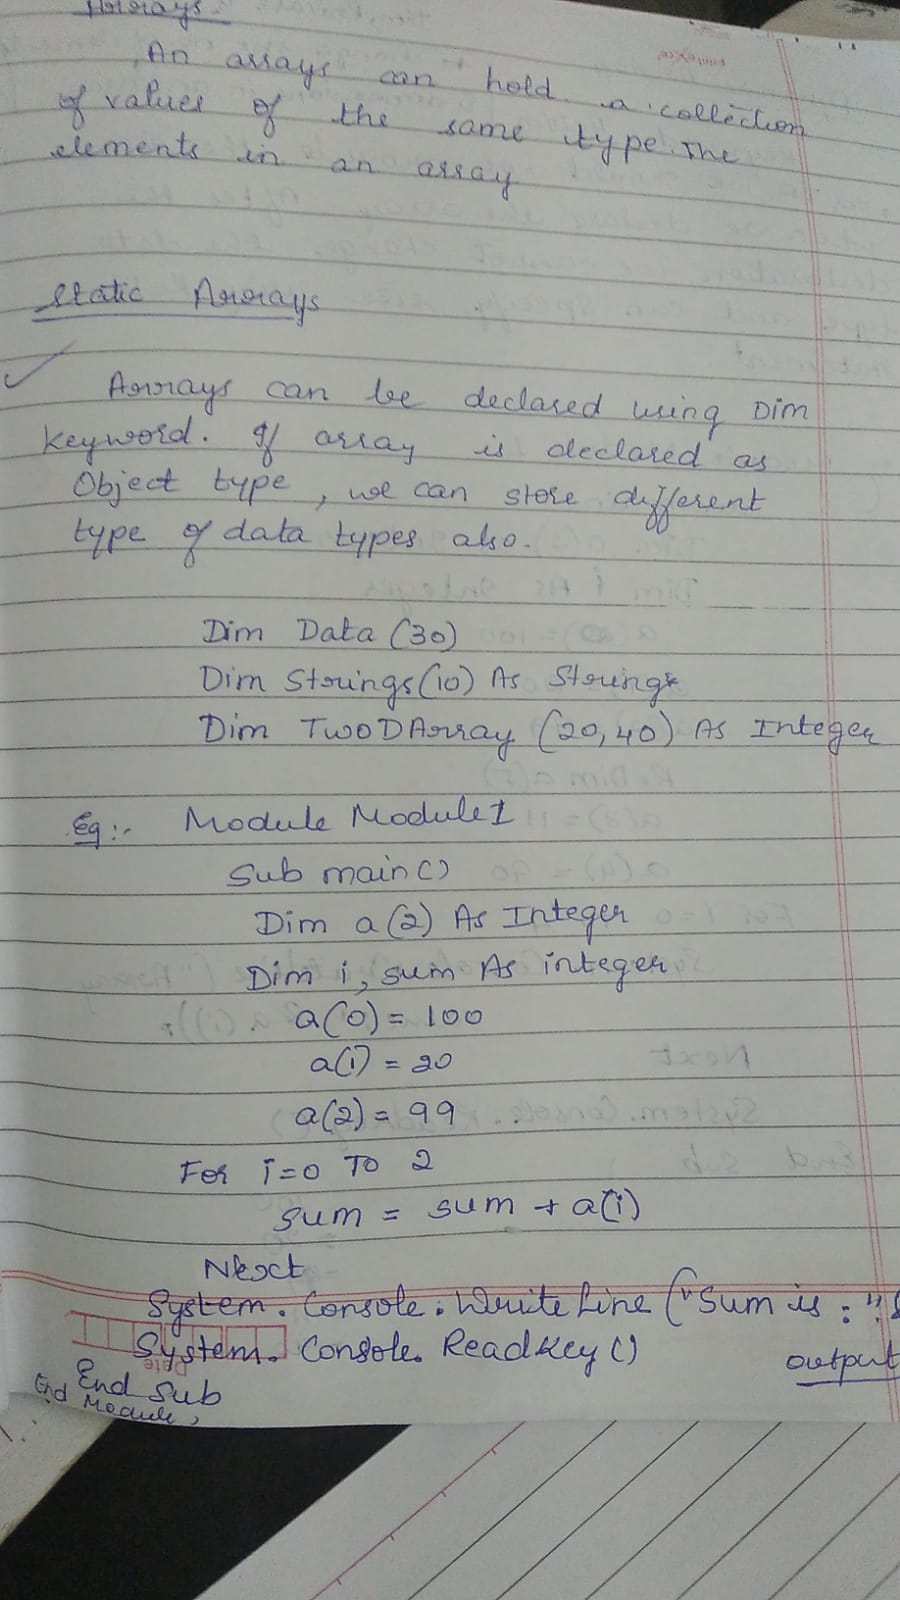 Arrays
An arrays can hold a collection
of values of the same type. The
elements in an array
Static Arrays
Arrays can be declared using Dim
Keyword. If array is declared as
Object type, we can store different
type of data types also.
Dim Data (30)
Dim Strings (10) As Strings
Dim TwoDArray (20,40) As Integer
Eg:- Module Module1
Sub main()
Dim a(2) As Integer
Dim i, sum As integer
a(0) = 100
a(1) = 20
a(2) = 99
For i=0 To 2
sum = sum + a(i)
Next
System. Console. Write Line ("Sum is : "
System. Console. Readkey ()
output
End Sub
End Module